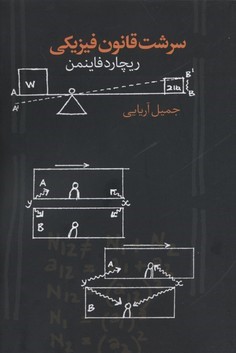 سرشت قانون فیزیکی
ریچارد فاینمن
W
B'
A
B
A'
جمیل آریایی
A
y
x
B
A
y
x
B